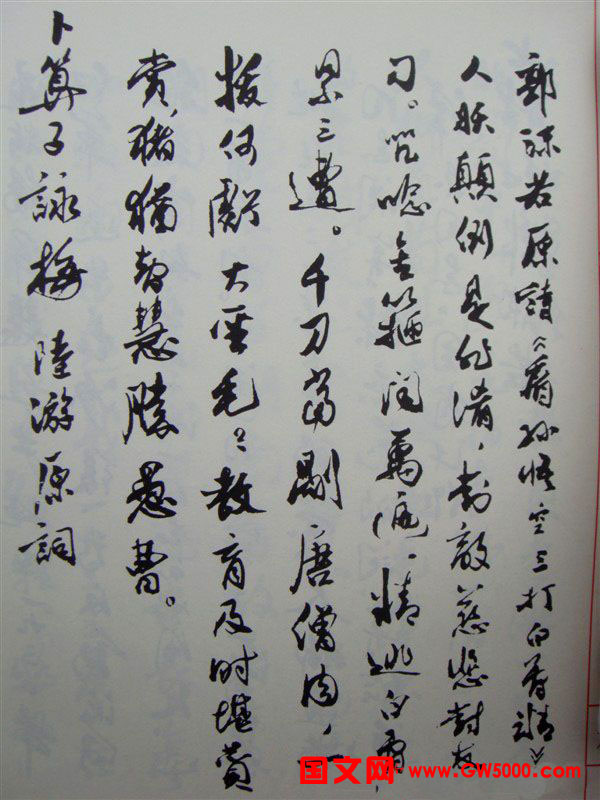 郭沫若原詩《看孙悟空三打白骨精》
人妖顛倒是非淆，对敵慈悲对友
刁。咒念金箍闻萬遍，精逃白骨
累三遭。千刀當剮唐僧肉，一
拔何虧大聖毛。教育及时堪賛
賞，猪猶智慧勝愚曹。
卜算子 詠梅 陸游原詞
国文网 www.GW5000.com